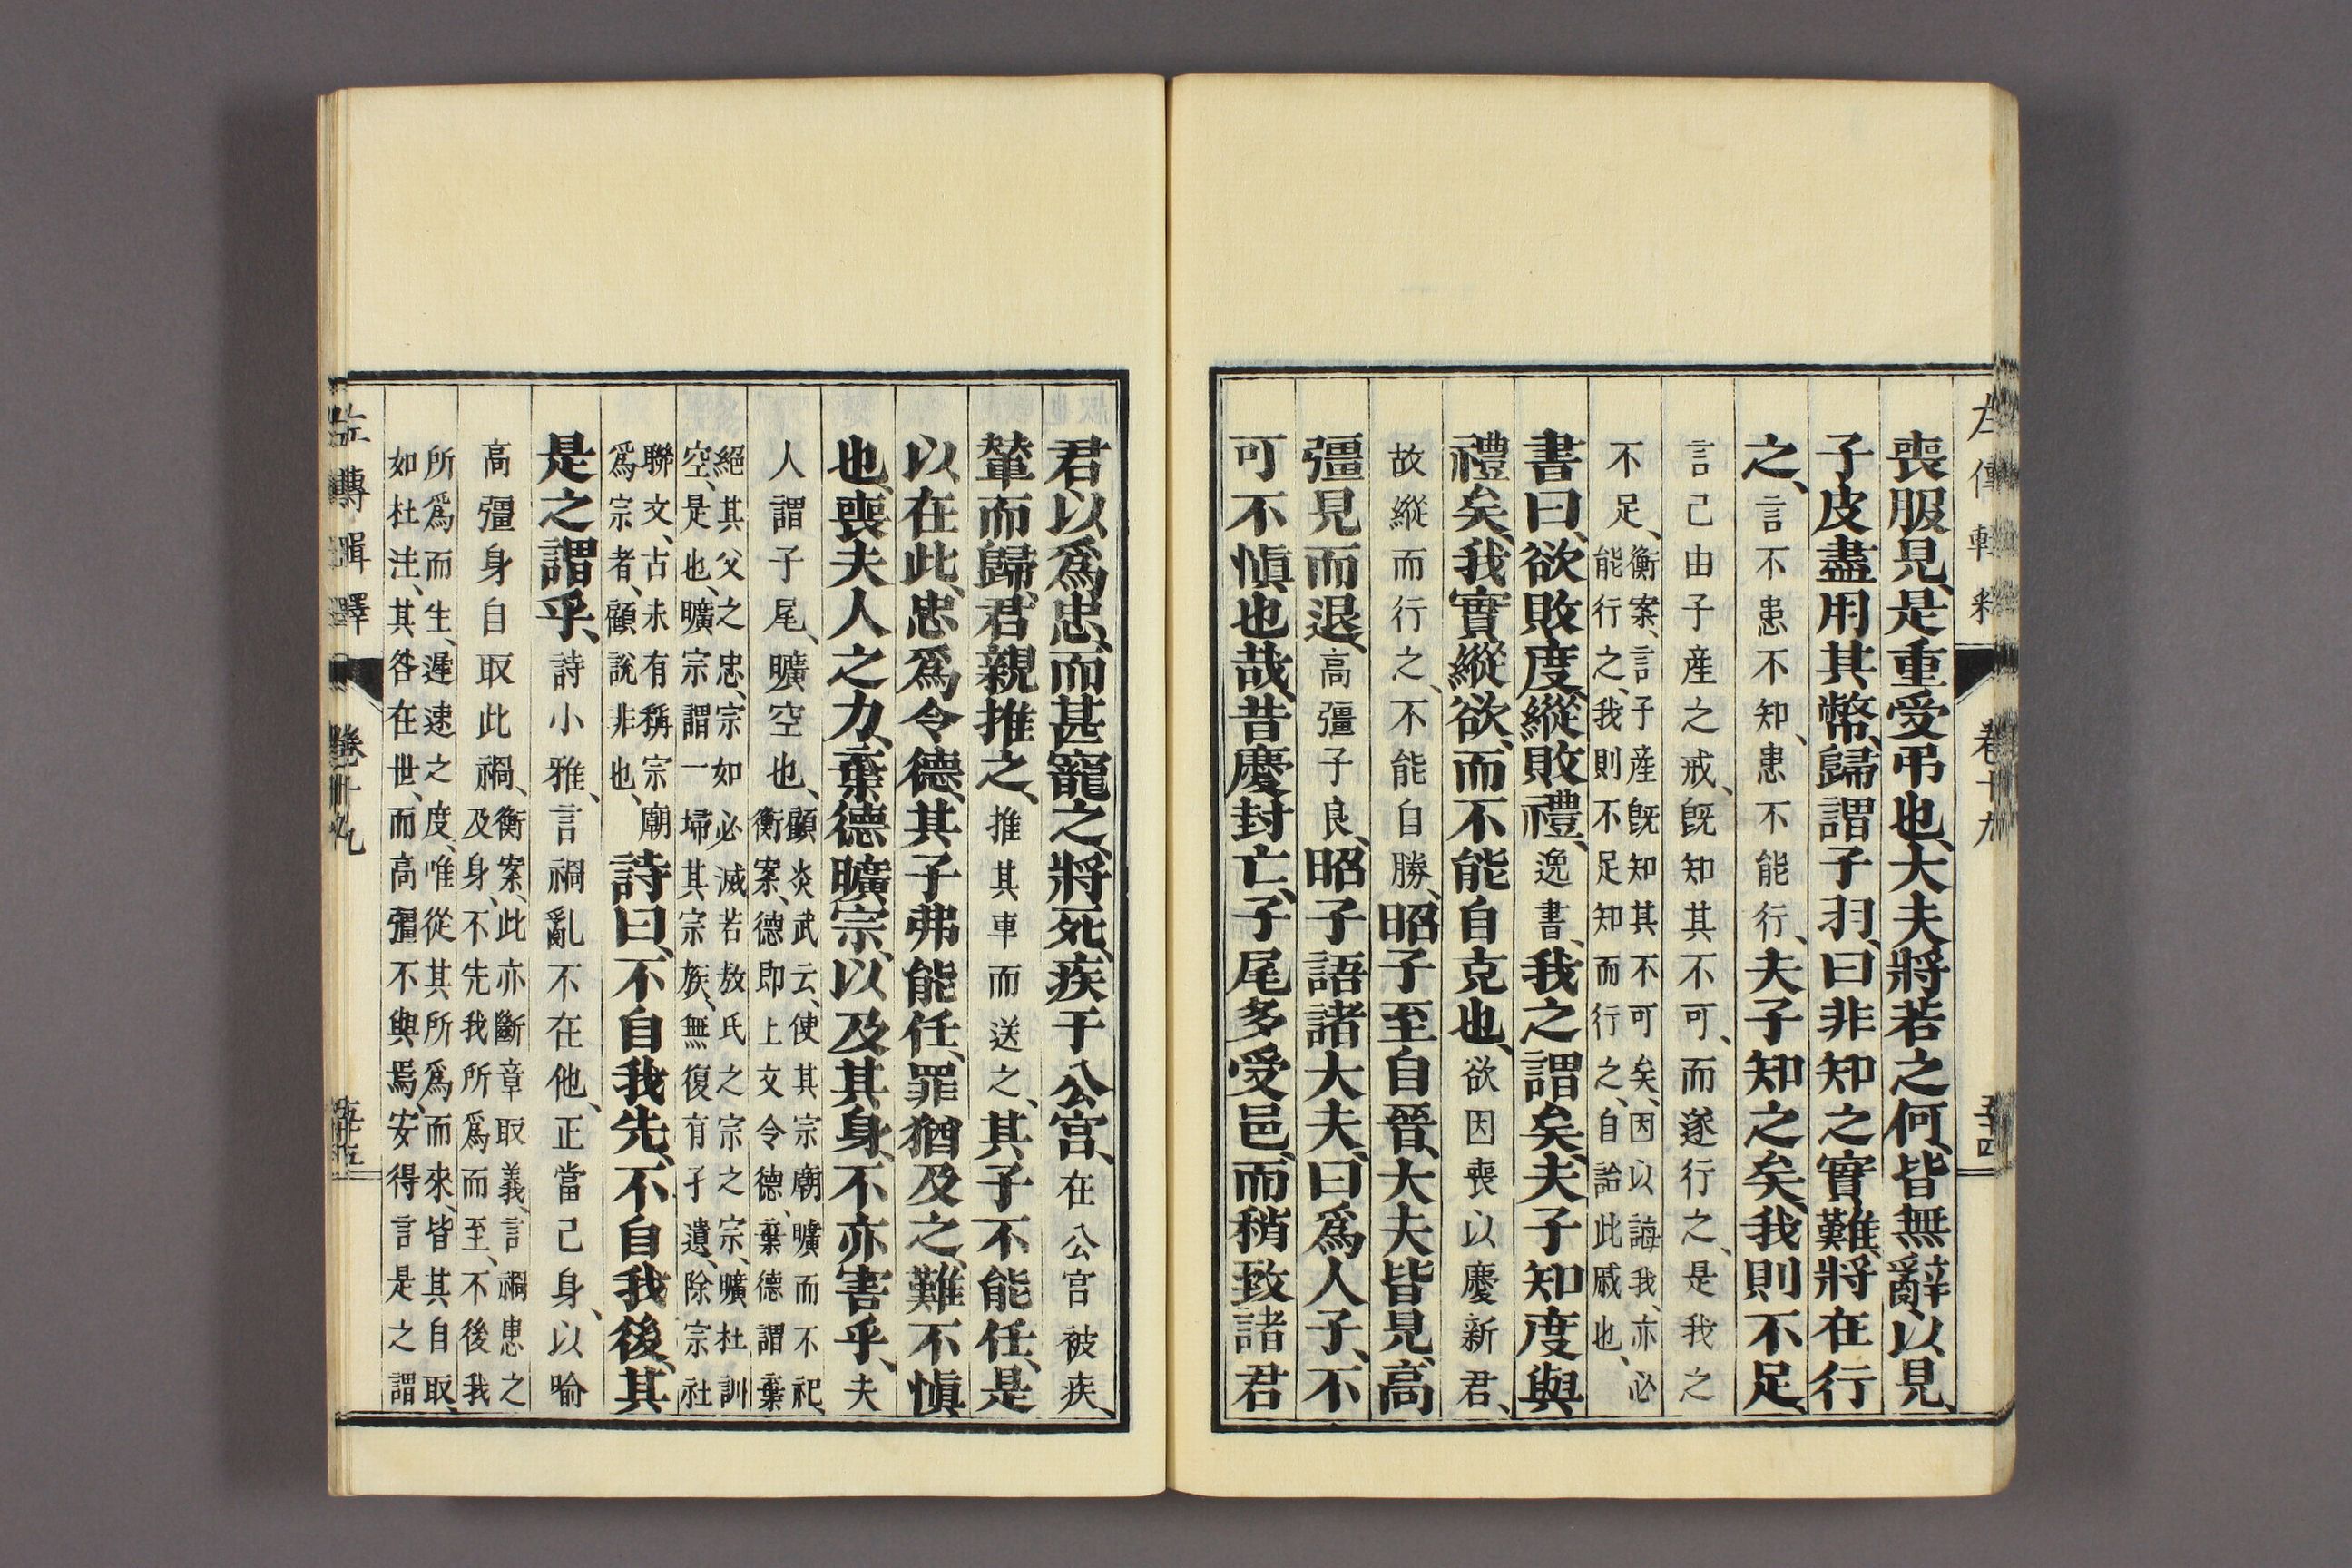 左傳輯釋 卷十九 五十四
喪服見、是重受弔也、大夫將若之何、皆無辭以見、
子皮盡用其幣、歸謂子羽、曰非知之實難、將在行
之、言不患不知、患不能行、夫子知之矣、我則不足、
言己由子産之戒、旣知其不可、而遂行之、是我之
不足、衡案、言子産旣知其不可矣、因以誨我、亦必
能行之、我則不足知而行之、自詒此戚也、
書曰、欲敗度、縱敗禮、逸書、我之謂矣、夫子知度與
禮矣、我實縱欲、而不能自克也、欲因喪以慶新君、
故縱而行之、不能自勝、昭子至自晉、大夫皆見、高
彊見而退、高彊子良、昭子語諸大夫、曰爲人子、不
可不愼也哉、昔慶封亡、子尾多受邑、而稍致諸君
君以爲忠、而甚寵之、將死、疾于公宮、在公宮被疾、
輦而歸、君親推之、推其車而送之、其子不能任、是
以在此、忠爲令德、其子弗能任、罪猶及之、難不愼
也、喪夫人之力、棄德曠宗、以及其身、不亦害乎、夫
人謂子尾、曠空也、顧炎武云、使其宗廟曠而不祀、
衡案、德即上文令德、棄德謂棄
絕其父之忠、宗如必滅若敖氏之宗之宗、曠杜訓
空、是也、曠宗謂一埽其宗族、無復有孑遺、除宗社
聯文、古未有稱宗廟
爲宗者、顧說非也、
詩曰、不自我先、不自我後、其
是之謂乎、詩小雅、言禍亂不在他、正當己身、以喻
高彊身自取此禍、衡案、此亦斷章取義、言禍患之
及身、不先我所爲而至、不後我
所爲而生、遲速之度、唯從其所爲而來、皆其自取、
如杜注、其咎在世、而高彊不與焉、安得言是之謂
左傳輯釋 卷十九 五十五